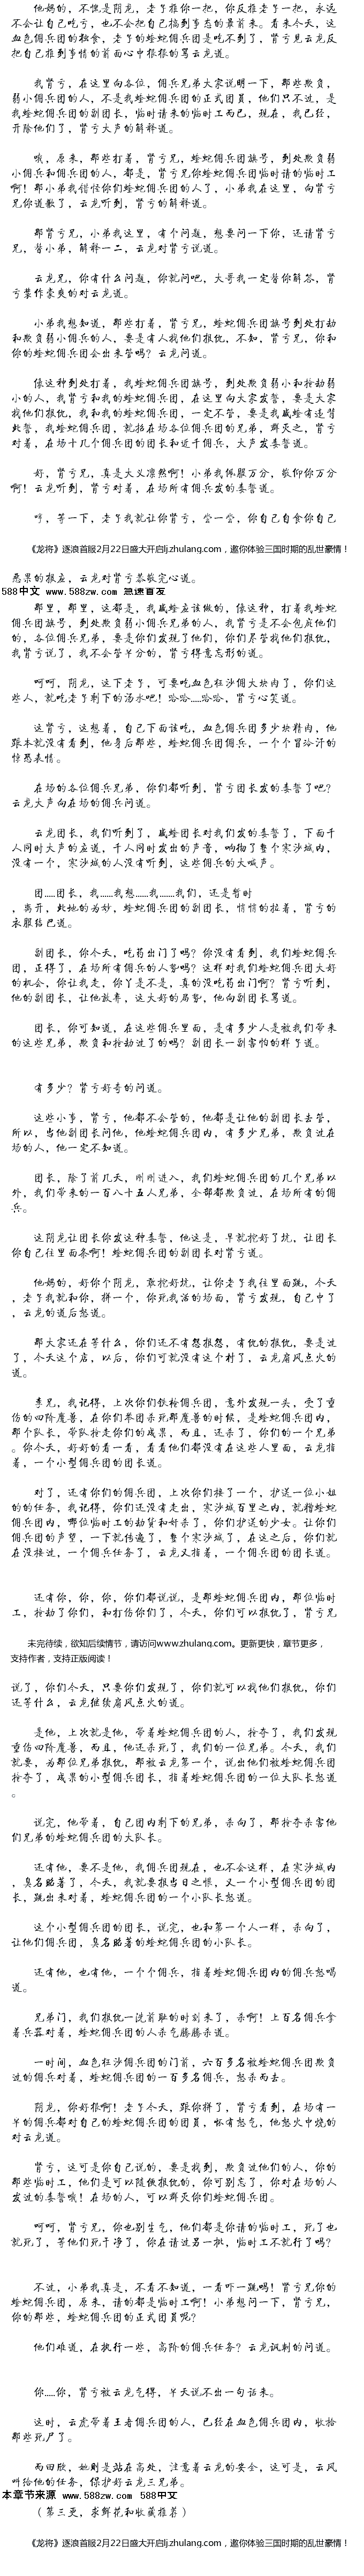 他妈的，不愧是阴龙，老子推你一把，你反推老子一把，永远
不会让自己吃亏，也不会把自己搞到事态的最前来。看来今天，这
血色佣兵团的独食，老子是吃不到了，贤亏见云龙反
把自己推到事情的首面心中狠狠的骂云龙道。
我贤亏，在这里向各位，佣兵兄弟大家说明一下，那些欺负，
弱小佣兵团的人，不是我蛙蛇佣兵团的正式团员，他们只不过，是
我蛙蛇佣兵团的副团长，临时请来的临时工而已，现在，我已经，
开除他们了，贤亏大声的解释道。
哦，原来，那些打着，贤亏兄，蛙蛇佣兵团旗号，到处欺负弱
小佣兵和佣兵团的人，都是，贤亏兄你蛙蛇佣兵团临时请的临时工
啊！那小弟我错怪你们蛙蛇佣兵团的人了，小弟我在这里，向贤亏
兄你道歉了，云龙听到，贤亏的解释道。
那贤亏兄，小弟我这里，有个问题，想要问一下你，还请贤亏
兄，替小弟，解释一二，云龙对贤亏说道。
云龙兄，你有什么问题，你就问吧，大哥我一定替你解答，贤
亏装作豪爽的对云龙道。
小弟我想知道，那些打着，贤亏兄，蛙蛇佣兵团旗号到处打劫
和欺负弱小佣兵的人，要是有人找他们报仇，不知，贤亏兄，你和
你的蛙蛇佣兵团会出来管吗？云龙问道。
像这种到处打着，我蛙蛇佣兵团旗号，到处欺负弱小和抢劫弱
小的人，我贤亏和我的蛙蛇佣兵团，在这里向大家发誓，要是大家
找他们报仇，我和我的蛙蛇佣兵团，一定不管，要是我戚蛙有违背
此誓，我蛙蛇佣兵团，就将在场各位佣兵团的兄弟，群灭之，贤亏
对着，在场十几个佣兵团的团长和近千佣兵，大声发毒誓道。
好，贤亏兄，真是大义凛然啊！小弟我佩服万分，敬仰你万分
啊！云龙听到，贤亏对着，在场所有佣兵发的毒誓道。
哼，等一下，老子我就让你贤亏，尝一尝，你自己自食你自己
《龙将》逐浪首服2月22日盛大开启ljzhulang.com，邀你体验三国时期的乱世豪情！
恶果的报应，云龙对贤亏恭敬完心道。
588中文 www.588zw.com 急速首发
那里，那里，这都是，我戚蛙应该做的，像这种，打着我蛙蛇
佣兵团旗号，到处欺负弱小佣兵兄弟的人，我贤亏是不会包庇他们
的，各位佣兵兄弟，要是你们发现了他们，你们尽管找他们报仇，
我贤亏说了，我不会管半分的，贤亏得意忘形的道。
呵呵，阴龙，这下老子，可要吃血色狂沙佣大块肉了，你们这
些人，就吃老子剩下的汤水吧！哈哈……哈哈，贤亏心笑道。
这贤亏，这想着，自己下面该吃，血色佣兵团多少块精肉，他
跟本就没有看到，他身后那些，蛙蛇佣兵团佣兵，一个个冒冷汗的
惊恐表情。
在场的各位佣兵兄弟，你们都听到，贤亏团长发的毒誓了吧？
云龙大声向在场的佣兵问道。
云龙团长，我们听到了，戚蛙团长对我们发的毒誓了，下面千
人同时大声的应道，千人同时发出的声音，响彻了整个寒沙城内，
没有一个，寒沙城的人没有听到，这些佣兵的大喊声。
团……团长，我……我想……我……我们，还是暂时
，离开，此地的为妙，蛙蛇佣兵团的副团长，悄悄的拉着，贤亏的
衣服结巴道。
副团长，你今天，吃药出门了吗？你没有看到，我们蛙蛇佣兵
团，正得了，在场所有佣兵的人势吗？这样对我们蛙蛇佣兵团大好
的机会，你让我走，你丫是不是，真的没吃药出门啊？贤亏听到，
他的副团长，让他放弃，这大好的局势，他向副团长骂道。
团长，你可知道，在这些佣兵里面，是有多少人是被我们带来
的这些兄弟，欺负和抢劫过了的吗？副团长一副害怕的样子道。
有多少？贤亏好奇的问道。
这些小事，贤亏，他都不会管的，他都是让他的副团长去管，
所以，当他副团长问他，他蛙蛇佣兵团内，有多少兄弟，欺负过在
场的人，他一定不知道。
团长，除了前几天，刚刚进入，我们蛙蛇佣兵团的几个兄弟以
外，我们带来的一百八十五人兄弟，全部都欺负过，在场所有的佣
兵。
这阴龙让团长你发这种毒誓，他这是，早就挖好了坑，让团长
你自己往里面条啊！蛙蛇佣兵团的副团长对贤亏道。
他妈的，好你个阴龙，敢挖好坑，让你老子我往里面跳，今天
，老子我就和你，拼一个，你死我活的场面，贤亏发现，自己中了
，云龙的道后怒道。
那大家还在等什么，你们还不有怨报怨，有仇的报仇，要是过
了，今天这个店，以后，你们可就没有这个村了，云龙扇风点火的
道。
李兄，我记得，上次你们铁枪佣兵团，意外发现一头，受了重
伤的四阶魔兽，在你们界团杀死那魔兽的时候，是蛙蛇佣兵团内，
那个队长，带队抢走你们的成果，而且，还杀了，你们的一个兄弟
。你今天，好好的看一看，看看他们都没有在这些人里面，云龙指
着，一个小型佣兵团的团长道。
对了，还有你们的佣兵团，上次你们接了一个，护送一位小姐
的的任务，我记得，你们还没有走出，寒沙城百里之内，就糟蛙蛇
佣兵团内，哪位临时工的劫货和奸杀了，你们护送的少女。让你们
佣兵团的声望，一下就传遍了，整个寒沙城了，在这之后，你们就
在没接过，一个佣兵任务了，云龙又指着，一个佣兵团的团长道。
还有你，你，你，你们都说说，是那蛙蛇佣兵团内，那位临时
工，抢劫了你们，和打伤你们了，今天，你们可以报仇了，贤亏兄
未完待续，欲知后续情节，请访问www.zhulang.com。更新更快，章节更多，
支持作者，支持正版阅读！
说了，你们今天，只要你们发现了，你们就可以找他们报仇，你们
还等什么，云龙继续扇风点火的道。
是他，上次就是他，带着蛙蛇佣兵团的人，抢夺了，我们发现
重伤的四阶魔兽，而且，他还杀死了，我们的一位兄弟。今天，我们
就要，为那位兄弟报仇，那被云龙第一个，说出他们被蛙蛇佣兵团
抢夺了，成果的小型佣兵团长，指着蛙蛇佣兵团的一位大队长怒道
。
说完，他带着，自己团内剩下的兄弟，杀向了，那抢夺杀害他
们兄弟的蛙蛇佣兵团的大队长。
还有他，要不是他，我佣兵团现在，也不会这样，在寒沙城内
，臭名昭著了，今天，我就要报当日之恨，又一个小型佣兵团的团
长，跳出来对着，蛙蛇佣兵团的一个小队长怒道。
这个小型佣兵团的团长，说完，也和第一个人一样，杀向了，
让他们佣兵团，臭名昭著的蛙蛇佣兵团的小队长。
还有他，也有他，一个个佣兵，指着蛙蛇佣兵团内的佣兵怒喝
道。
兄弟门，我们报仇一洗前耻的时刻来了，杀啊！上百名佣兵拿
着兵器对着，蛙蛇佣兵团的人杀气腾腾杀道。
一时间，血色狂沙佣兵团的门前，六百多名被蛙蛇佣兵团欺负
过的佣兵对着，蛙蛇佣兵团的一百多名佣兵，怒杀而去。
阴龙，你好狠啊！老子今天，跟你拼了，贤亏看到，在场有一
半的佣兵都对自己的蛙蛇佣兵团的团员，怀有怒气，他怒火中烧的
对云龙道。
贤亏，这可是你自己说的，要是找到，欺负过他们的人，你的
那些临时工，他们是可以随便报仇的，你可别忘了，你对在场的人
发过的毒誓哦！在场的人，可以群灭你们蛙蛇佣兵团。
呵呵，贤亏兄，你也别生气，他们都是你请的临时工，死了也
就死了，等他们死干净了，你在请过另一批，临时工不就行了吗？
不过，小弟我真是，不看不知道，一看吓一跳吗！贤亏兄你的
蛙蛇佣兵团，原来，请的都是临时工啊！小弟想问一下，贤亏兄，
你的那些，蛙蛇佣兵团的正式团员呢？
他们难道，在执行一些，高阶的佣兵任务？云龙讽刺的问道。
你……你，贤亏被云龙气得，半天说不出一句话来。
这时，云虎带着王者佣兵团的人，已经在血色佣兵团内，收拾
那些死尸了。
而四欣，她则是站在高处，注意着云龙的安全，这可是，云风
叫给他的任务，保护好云龙三兄弟。
本章节来源 www.588zw.com 588中文
（第三更，求鲜花和收藏推荐）
《龙将》逐浪首服2月22日盛大开启ljzhulang.com，邀你体验三国时期的乱世豪情！